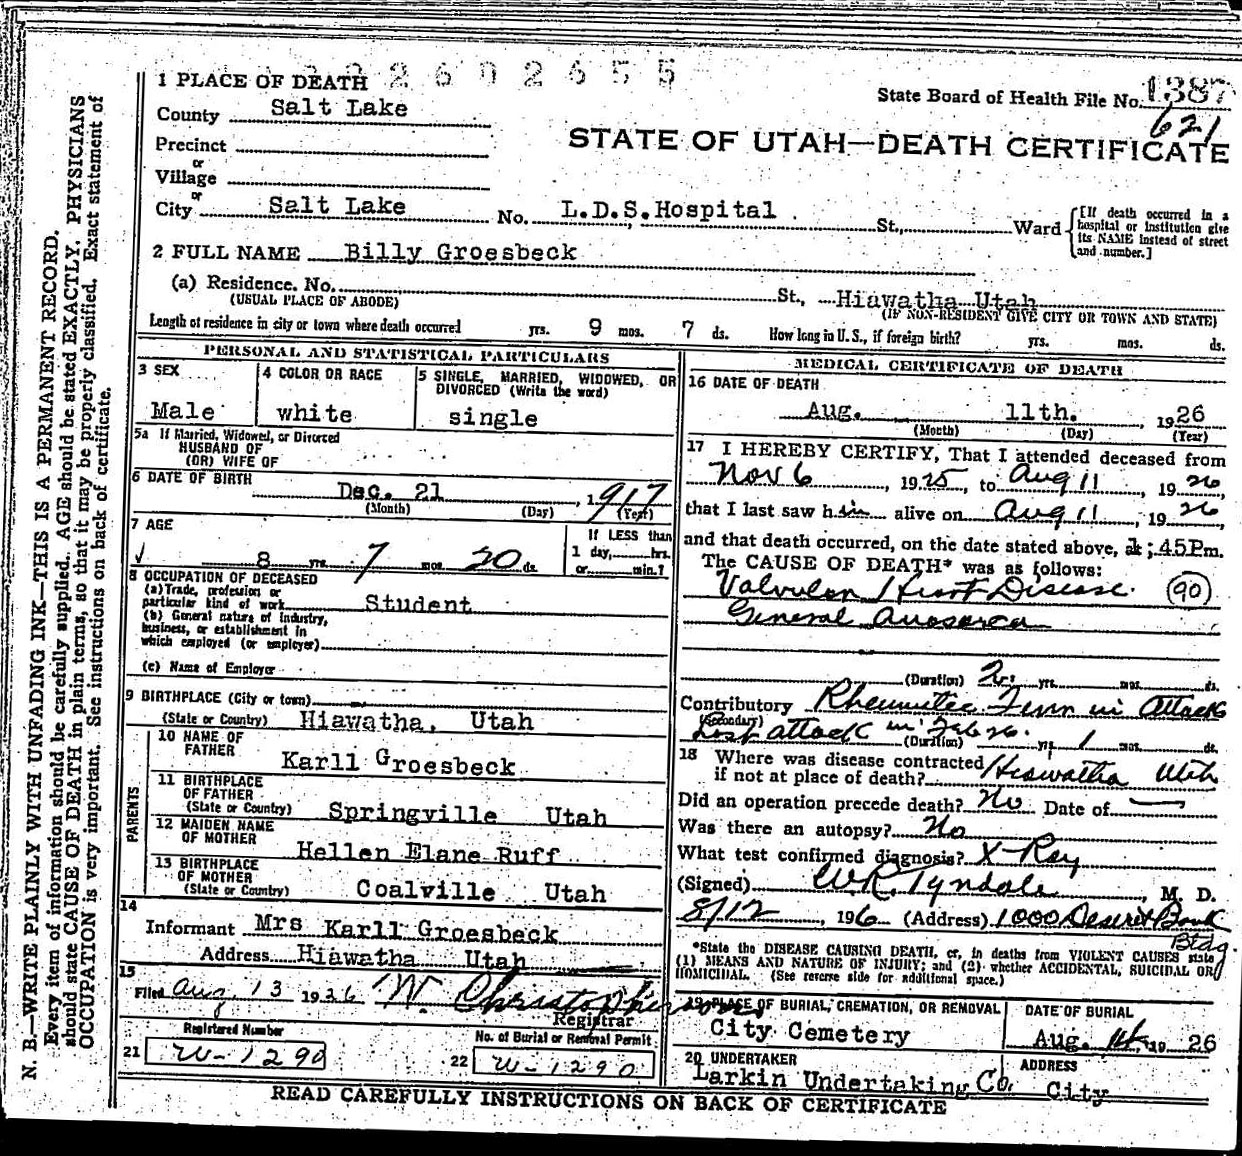 N. B.—WRITE PLAINLY WITH UNFADING INK—THIS IS A PERMANENT RECORD.
Every item of information should be carefully supplied. AGE should be stated EXACTLY. PHYSICIANS
should state CAUSE OF DEATH in plain terms, so that it may be properly classified. Exact statement of
OCCUPATION is very important. See instructions on back of certificate.
1 PLACE OF DEATH
State Board of Health File No. 1387
621
County Salt Lake
STATE OF UTAH—DEATH CERTIFICATE
Precinct
or
Village
or
City Salt Lake No. L.D.S. Hospital St., Ward
[If death occurred in a
hospital or institution give
its NAME instead of street
and number.]
2 FULL NAME Billy Groesbeck
(a) Residence. No. St., Hiawatha Utah
(USUAL PLACE OF ABODE) (IF NON-RESIDENT GIVE CITY OR TOWN AND STATE)
Length of residence in city or town where death occurred yrs. 9 mos. 7 ds. How long in U. S., if foreign birth? yrs. mos. ds.
PERSONAL AND STATISTICAL PARTICULARS
3 SEX
Male
4 COLOR OR RACE
white
5 SINGLE, MARRIED, WIDOWED, OR
DIVORCED (Write the word)
single
5a If Married, Widowed, or Divorced
HUSBAND OF
(OR) WIFE OF
6 DATE OF BIRTH Dec. 21, 1917
(Month) (Day) (Year)
7 AGE
8 yrs. 7 mos. 20 ds.
If LESS than
1 day, hrs.
or min.?
8 OCCUPATION OF DECEASED
(a) Trade, profession or
particular kind of work Student
(b) General nature of industry,
business, or establishment in
which employed (or employer)
(c) Name of Employer
9 BIRTHPLACE (City or town)
(State or Country) Hiawatha, Utah
PARENTS
10 NAME OF
FATHER
Karll Groesbeck
11 BIRTHPLACE
OF FATHER
(State or Country) Springville Utah
12 MAIDEN NAME
OF MOTHER
Hellen Elane Ruff
13 BIRTHPLACE
OF MOTHER
(State or Country) Coalville Utah
14
Informant Mrs Karll Groesbeck
Address Hiawatha Utah
15
Filed Aug. 13 1926 W. Christopherson
Registrar
Registered Number
21 W-1290
No. of Burial or Removal Permit
22 W-1290
MEDICAL CERTIFICATE OF DEATH
16 DATE OF DEATH
Aug. 11th. 1926
(Month) (Day) (Year)
17 I HEREBY CERTIFY, That I attended deceased from
Nov 6, 1925, to Aug 11, 1926,
that I last saw him alive on Aug 11, 1926,
and that death occurred, on the date stated above, at :45Pm.
The CAUSE OF DEATH* was as follows:
Valvular Heart Disease. (90)
General Anasarca
(Duration) 2 yrs. mos. ds.
Contributory Rheumatic Fever in Attack
(Secondary)
Last attack in Feb 26.
(Duration) yrs. 1 mos. ds.
18 Where was disease contracted
if not at place of death? Hiawatha Utah
Did an operation precede death? No Date of —
Was there an autopsy? No
What test confirmed diagnosis? X-Ray
(Signed) WR. Tyndale, M. D.
8/12, 1926 (Address) 1000 Deseret Bank
Bldg.
*State the DISEASE CAUSING DEATH, or, in deaths from VIOLENT CAUSES state
(1) MEANS AND NATURE OF INJURY; and (2) whether ACCIDENTAL, SUICIDAL OR
HOMICIDAL. (See reverse side for additional space.)
19 PLACE OF BURIAL, CREMATION, OR REMOVAL
City Cemetery
DATE OF BURIAL
Aug. 1926
20 UNDERTAKER
Larkin Undertaking Co.
ADDRESS
City
READ CAREFULLY INSTRUCTIONS ON BACK OF CERTIFICATE